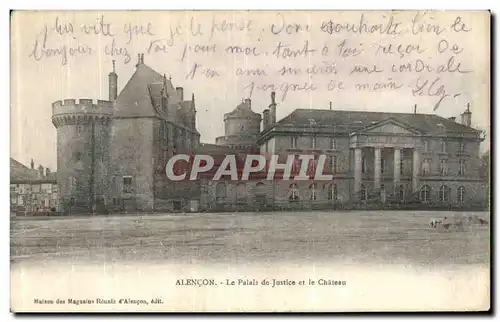 plus vite que je le pense. Donc souhaite bien le
bonjour chez toi pour moi, tant à toi reçoi de
ton ami sincère une cordiale
poignée de main
CPARAMA.COM
ALENÇON. - Le Palais de Justice et le Château
Maison des Magasins Réunis d'Alençon, édit.